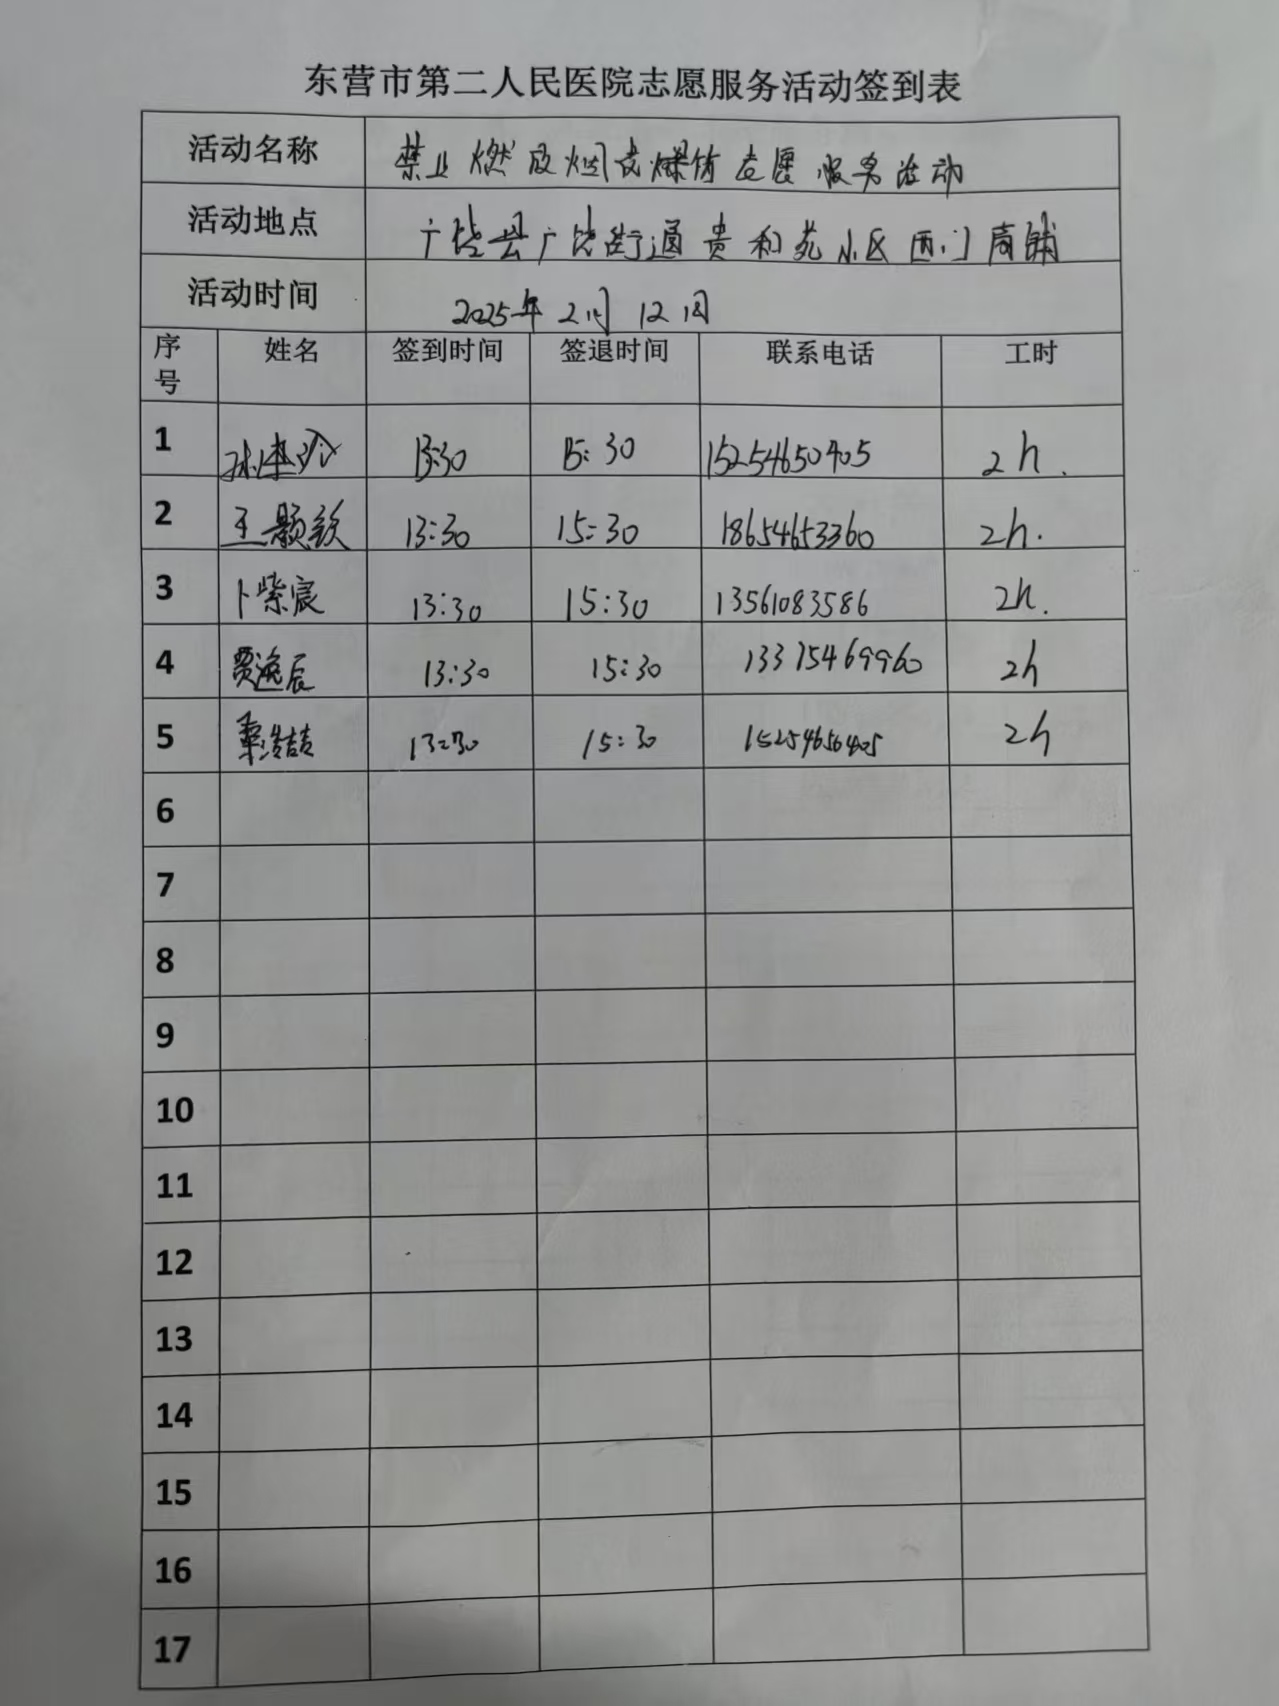 东营市第二人民医院志愿服务活动签到表
活动名称 禁止燃放烟花爆竹志愿服务活动
活动地点 广饶县广饶街道贵和苑小区西门商铺
活动时间 2025年2月12日
序号 姓名 签到时间 签退时间 联系电话 工时
1 13:30 15:30 15254650405 2h.
2 王颢钦 13:30 15:30 18654653360 2h.
3 卜紫宸 13:30 15:30 13561083586 2h.
4 贾逸辰 13:30 15:30 13375469960 2h
5 13:30 15:30 15254650405 2h
6
7
8
9
10
11
12
13
14
15
16
17